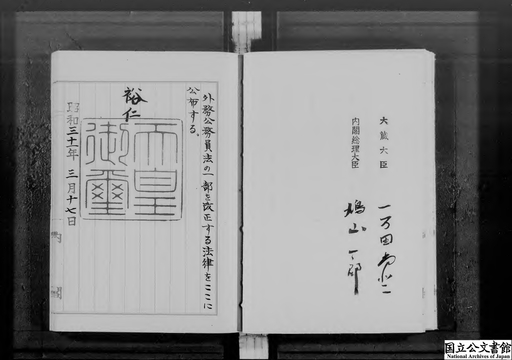 外務公務員法の一部を改正する法律をここに
公布する。
裕仁
天皇
御璽
昭和三十一年三月十七日
大蔵大臣 一万田尚登
内閣総理大臣 鳩山一郎
国立公文書館
National Archives of Japan